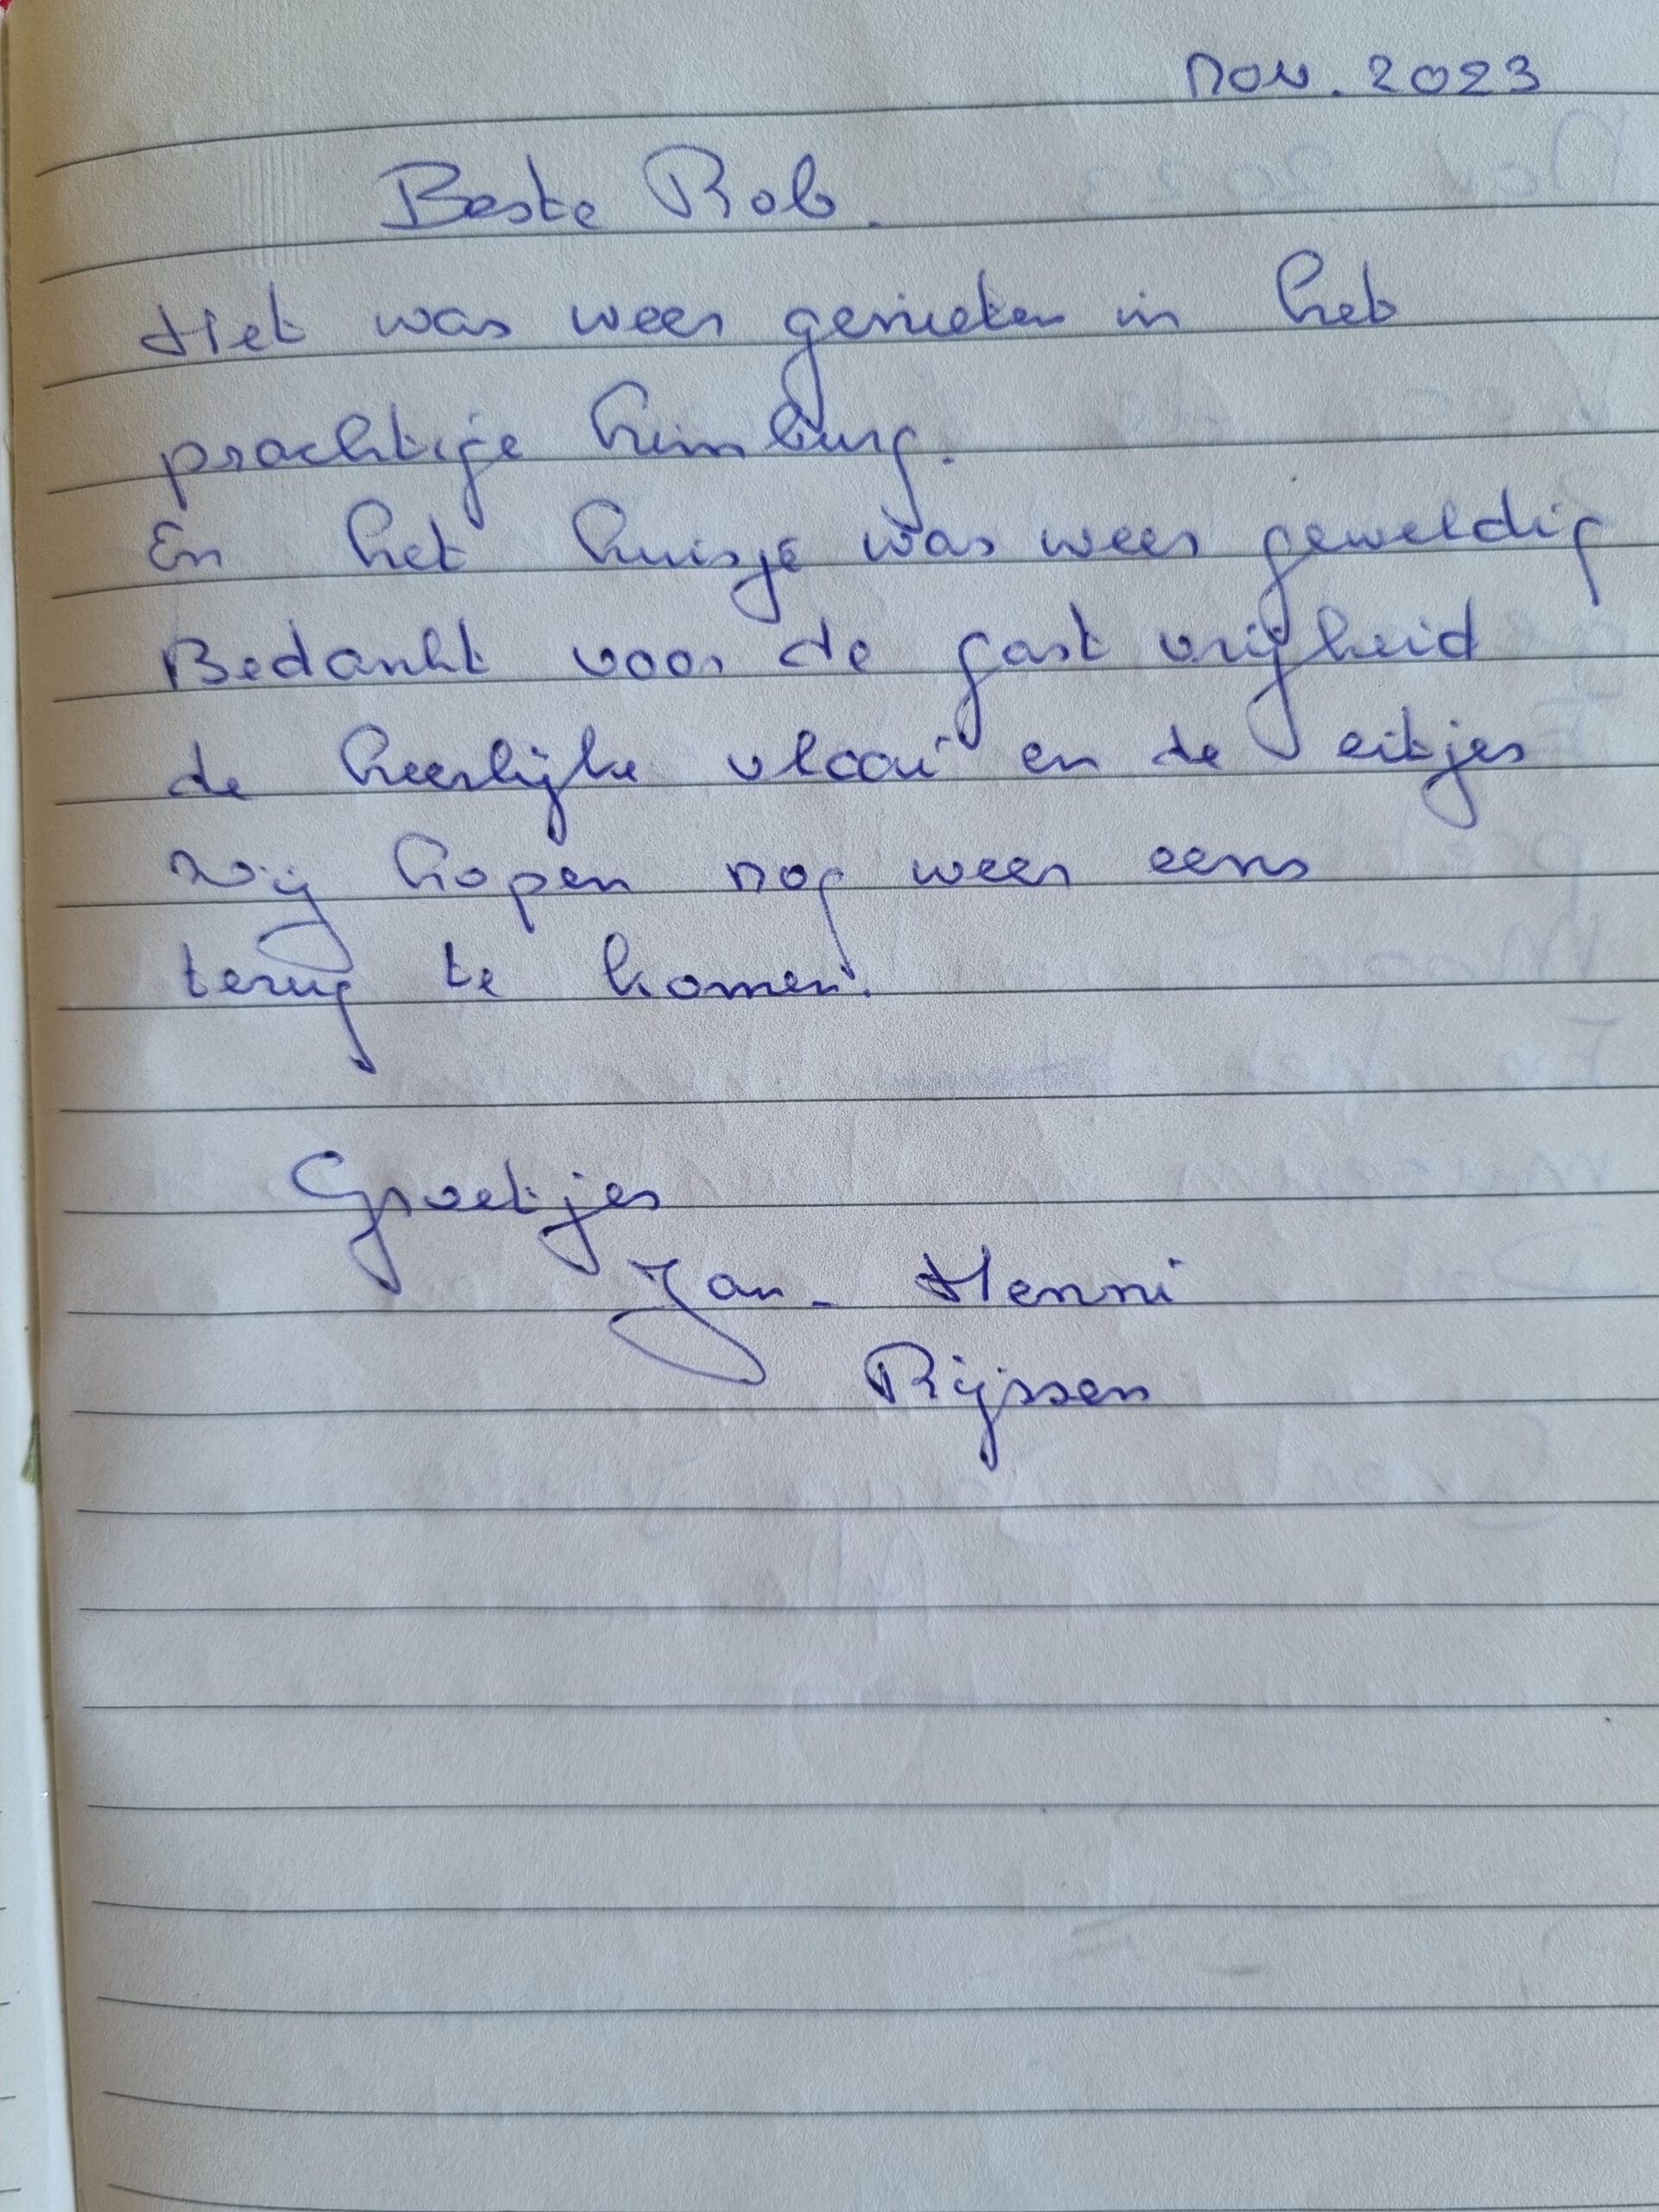 nov. 2023
Beste Rob.
Het was weer genieten in het
prachtige Limburg.
En het huisje was weer geweldig
Bedankt voor de gast vrijheid
de heerlijke vlaai en de eitjes
Wij hopen nog weer eens
terug te komen.
Groetjes
Jan - Henni
Rijssen